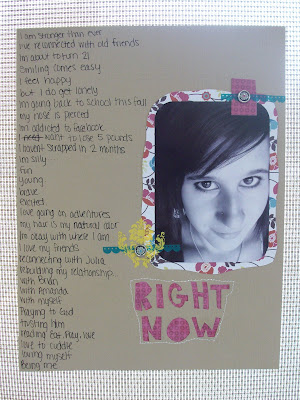 I am stronger than ever
I've reconnected with old friends
I'm about to turn 21
Smiling comes easy
I feel happy
but I do get lonely
I'm going back to school this fall
my nose is pierced
I'm addicted to facebook
I need want to lose 5 pounds
I haven't scrapped in 2 months
I'm silly
fun
young
brave
excited
love going on adventures
my hair is my natural color
I'm okay with where I am
I love my friends
reconnecting with Julia
rebuilding my relationship...
with Brian
with Amanda
with myself
Praying to God
trusting Him
reading Eat, Pray, love
love to cuddle
loving myself
Being me
RIGHT
NOW